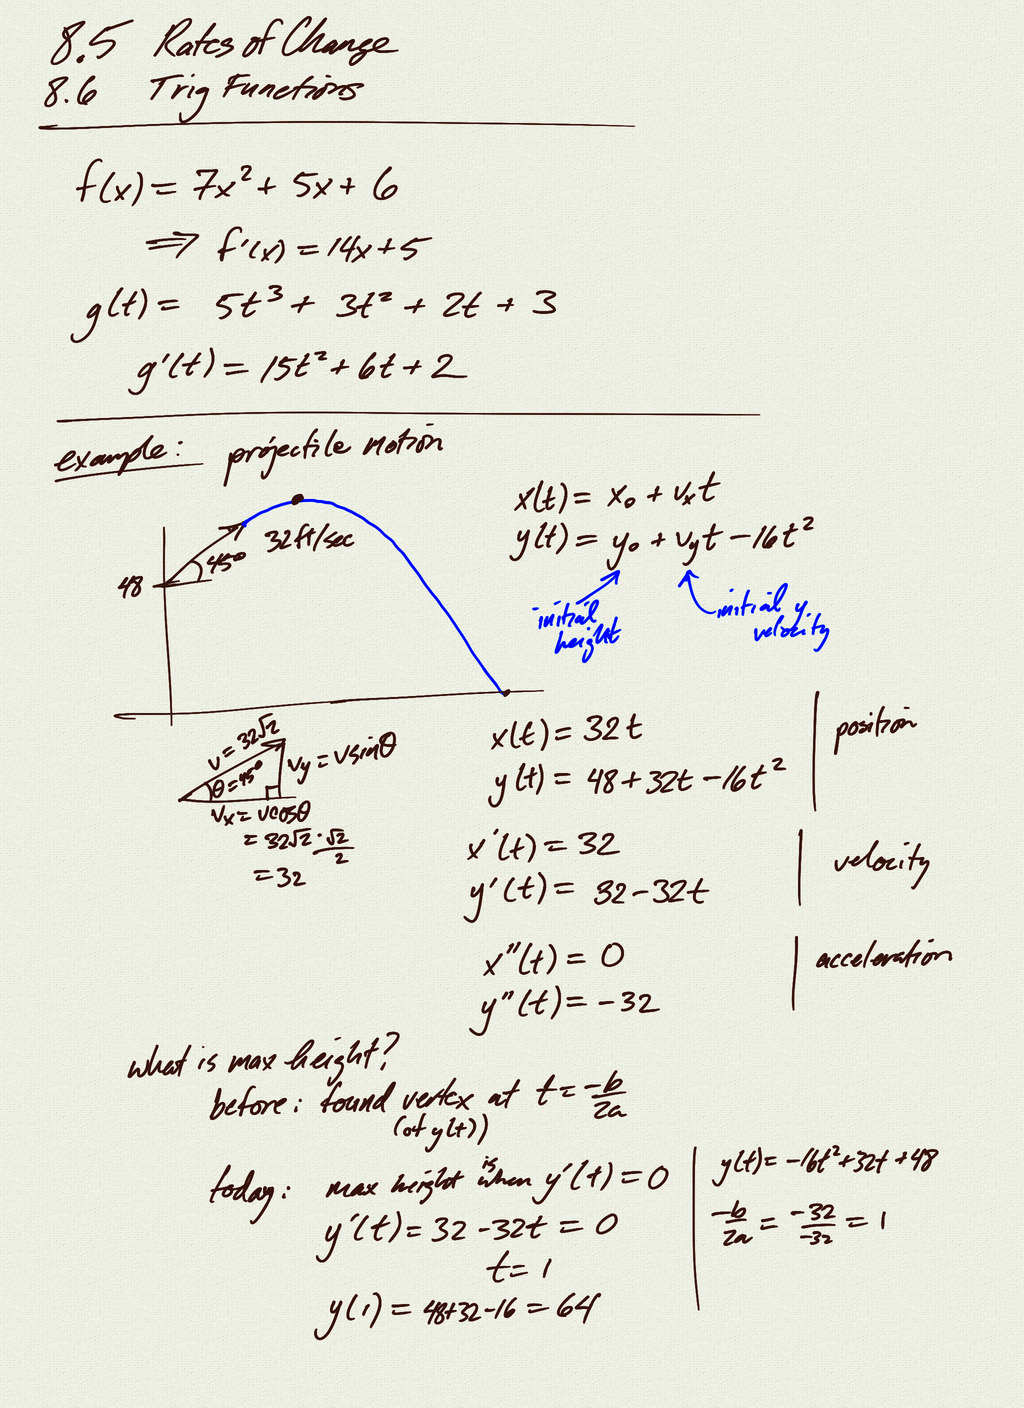 8.5 Rates of Change
8.6 Trig Functions
f(x) = 7x² + 5x + 6
⇒ f'(x) = 14x + 5
g(t) = 5t³ + 3t² + 2t + 3
g'(t) = 15t² + 6t + 2
example: projectile motion
48
45°
32 ft/sec
x(t) = x₀ + vₓt
y(t) = y₀ + v_y t − 16t²
initial height
initial y velocity
v = 32√2
θ = 45°
v_y = v sinθ
vₓ = v cosθ
= 32√2 · √2/2
= 32
x(t) = 32t
y(t) = 48 + 32t − 16t²
position
x'(t) = 32
y'(t) = 32 − 32t
velocity
x''(t) = 0
y''(t) = −32
acceleration
what is max height?
before: found vertex at t = −b/2a
(of y(t))
today: max height is when y'(t) = 0
y'(t) = 32 − 32t = 0
t = 1
y(1) = 48+32−16 = 64
y(t) = −16t² + 32t + 48
−b/2a = −32/−32 = 1